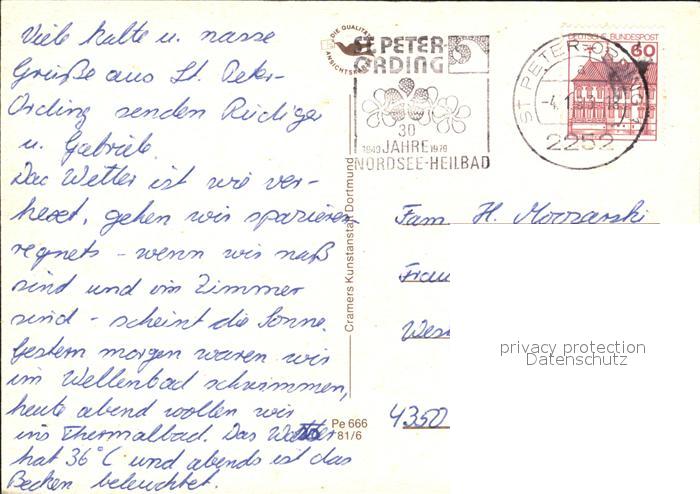 Viele kalte u. nasse
Grüße aus St. Peter-
Ording senden Rüdiger
u. Gabriele.
Das Wetter ist wie ver-
hext, gehen wir spazieren
regnets - wenn wir naß
sind und im Zimmer
sind - scheint die Sonne.
Gestern morgen waren wir
im Wellenbad schwimmen,
heute abend wollen wir
ins Thermalbad. Das Wasser
hat 36°C und abends ist das
Becken beleuchtet.
DIE QUALITÄTS
ANSICHTSKARTE
Cramers Kunstanstalt Dortmund
Pe 666
81/6
ST. PETER-
ORDING
30
1949 JAHRE 1979
NORDSEE-HEILBAD
ST PETER-ORDING
2252
DEUTSCHE BUNDESPOST
60
Fam. H.
Frau
Wes
4350
privacy protection
Datenschutz